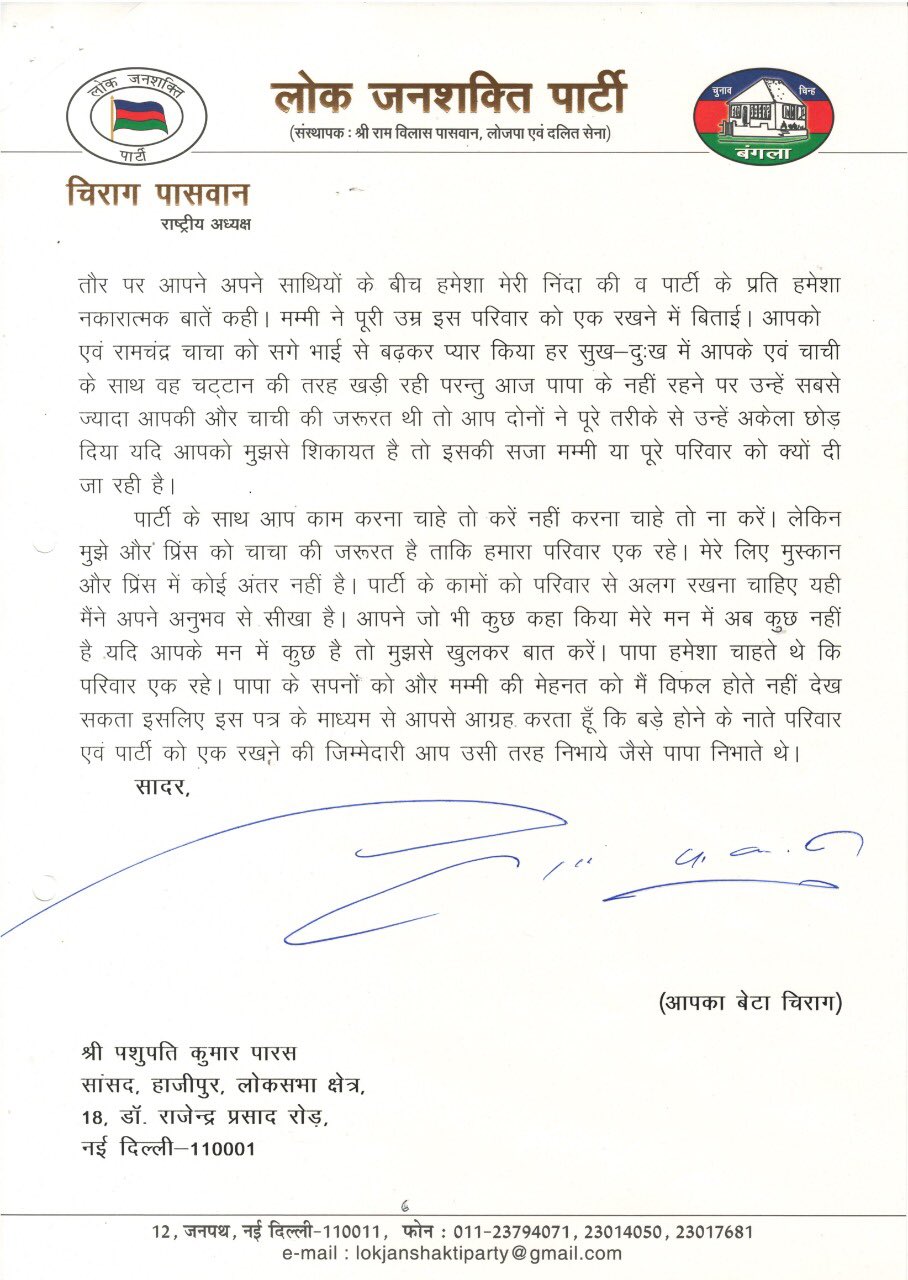 लोक जनशक्ति
पार्टी
लोक जनशक्ति पार्टी
(संस्थापक : श्री राम विलास पासवान, लोजपा एवं दलित सेना)
चुनाव चिन्ह
बंगला
चिराग पासवान
राष्ट्रीय अध्यक्ष
तौर पर आपने अपने साथियों के बीच हमेशा मेरी निंदा की व पार्टी के प्रति हमेशा
नकारात्मक बातें कही। मम्मी ने पूरी उम्र इस परिवार को एक रखने में बिताई। आपको
एवं रामचंद्र चाचा को सगे भाई से बढ़कर प्यार किया हर सुख–दुःख में आपके एवं चाची
के साथ वह चट्टान की तरह खड़ी रही परन्तु आज पापा के नहीं रहने पर उन्हें सबसे
ज्यादा आपकी और चाची की जरूरत थी तो आप दोनों ने पूरे तरीके से उन्हें अकेला छोड़
दिया यदि आपको मुझसे शिकायत है तो इसकी सजा मम्मी या पूरे परिवार को क्यों दी
जा रही है।
पार्टी के साथ आप काम करना चाहे तो करें नहीं करना चाहे तो ना करें। लेकिन
मुझे और प्रिंस को चाचा की जरूरत है ताकि हमारा परिवार एक रहे। मेरे लिए मुस्कान
और प्रिंस में कोई अंतर नहीं है। पार्टी के कामों को परिवार से अलग रखना चाहिए यही
मैंने अपने अनुभव से सीखा है। आपने जो भी कुछ कहा किया मेरे मन में अब कुछ नहीं
है यदि आपके मन में कुछ है तो मुझसे खुलकर बात करें। पापा हमेशा चाहते थे कि
परिवार एक रहे। पापा के सपनों को और मम्मी की मेहनत को मैं विफल होते नहीं देख
सकता इसलिए इस पत्र के माध्यम से आपसे आग्रह करता हूँ कि बड़े होने के नाते परिवार
एवं पार्टी को एक रखने की जिम्मेदारी आप उसी तरह निभाये जैसे पापा निभाते थे।
सादर,
(आपका बेटा चिराग)
श्री पशुपति कुमार पारस
सांसद, हाजीपुर, लोकसभा क्षेत्र,
18, डॉ. राजेन्द्र प्रसाद रोड़,
नई दिल्ली–110001
6
12, जनपथ, नई दिल्ली-110011, फोन : 011-23794071, 23014050, 23017681
e-mail : lokjanshaktiparty@gmail.com